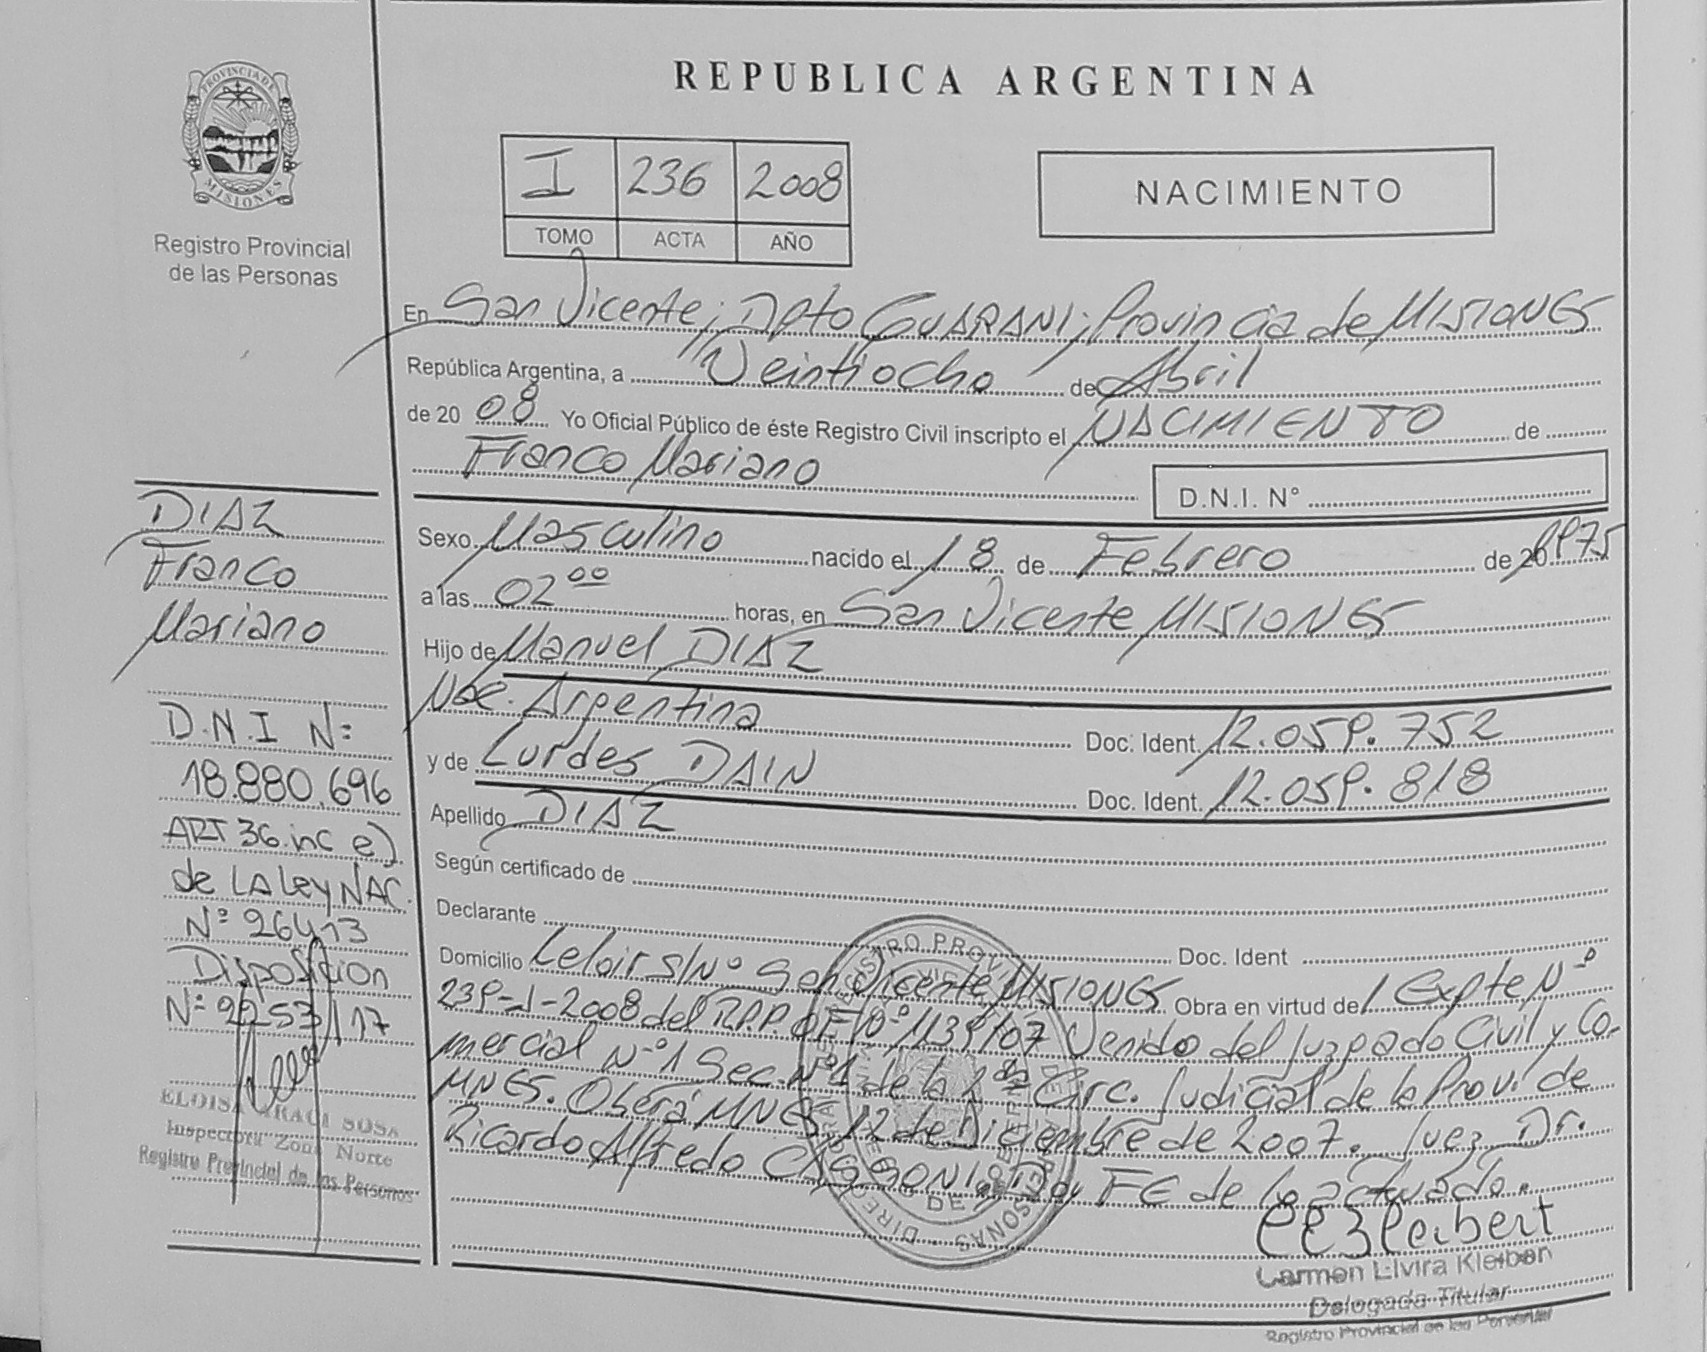 PROVINCIA DE
MISIONES
Registro Provincial
de las Personas
REPUBLICA ARGENTINA
I 236 2008
TOMO ACTA AÑO
NACIMIENTO
En San Vicente; Dpto GUARANI; Provincia de MISIONES
República Argentina, a Veintiocho de Abril
de 20 08 Yo Oficial Público de éste Registro Civil inscripto el NACIMIENTO de
Franco Mariano
D.N.I. N°
Sexo Masculino nacido el 18 de Febrero de 20 1975
a las 02 00 horas, en San Vicente MISIONES
Hijo de Manuel DIAZ
Nac. Argentina Doc. Ident. 12.059.752
y de Lurdes DAIN Doc. Ident. 12.059.818
Apellido DIAZ
Según certificado de
Declarante Doc. Ident
Domicilio Leloir S/Nº San Vicente MISIONES Obra en virtud del Expte Nº
239-J-2008 del R.P.P. OF Nº 1139/07 Venido del Juzgado Civil y Co-
mercial Nº 1 Sec. Nº 1 de la 2da Circ. Judicial de la Prov. de
MNES. Oberá MNES 12 de Diciembre de 2007. Juez Dr.
Ricardo Alfredo CASSONI. Doy FE de lo actuado.
Carmen Elvira Kleiben
Delegada Titular
Registro Provincial de las Personas
DIAZ
Franco
Mariano
D.N.I Nº
18.880.696
ART 36 inc e)
de LA Ley NAC.
Nº 26413
Disposicion
Nº 2253/17
ELOISA ARACI SOSA
Inspectora Zona Norte
Registro Provincial de las Personas